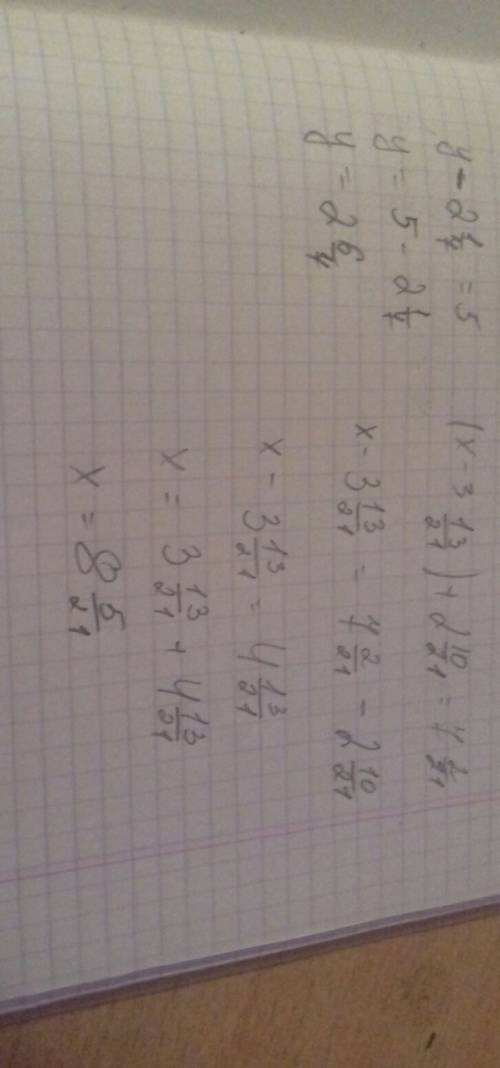 y - 2 1/7 = 5
y = 5 - 2 1/7
y = 2 6/7
(x - 3 13/21) + 2 10/21 = 7 2/21
x - 3 13/21 = 7 2/21 - 2 10/21
x - 3 13/21 = 4 13/21
x = 3 13/21 + 4 13/21
x = 8 5/21